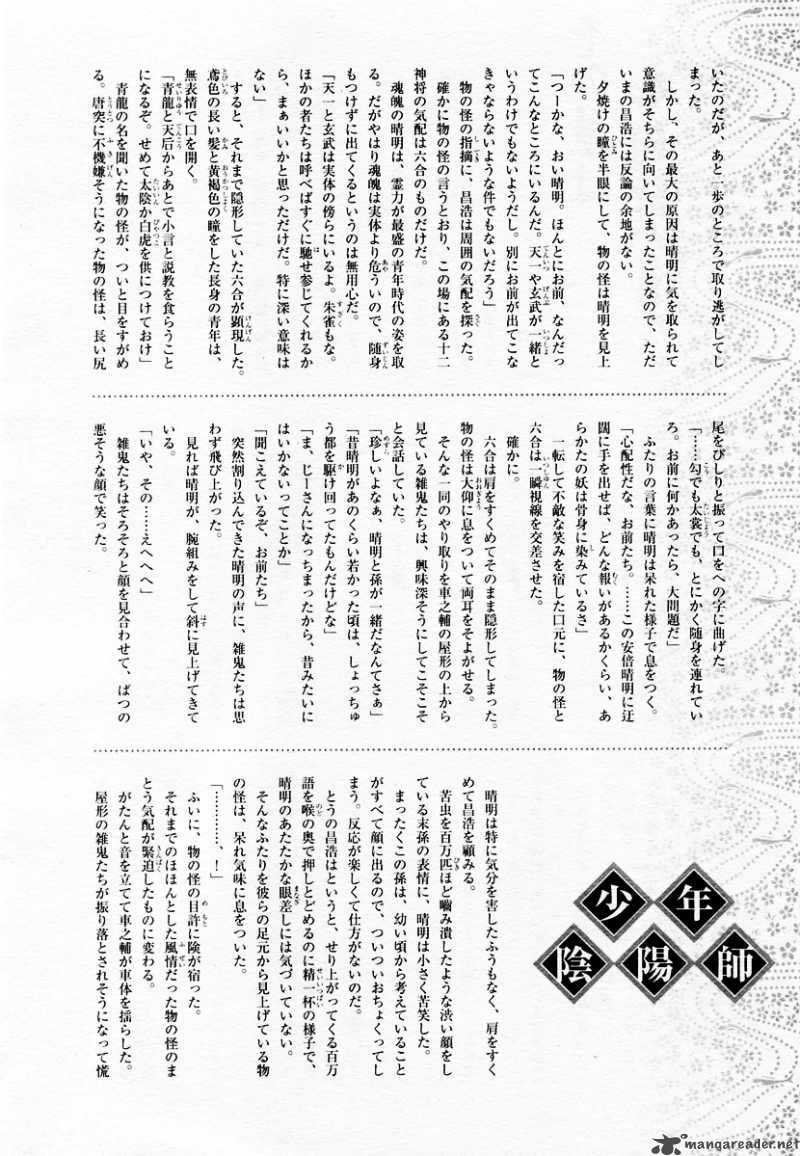 いたのだが、あと一歩のところで取り逃がしてし
まった。
しかし、その最大の原因は晴明に気を取られて
意識がそちらに向いてしまったことなので、ただ
いまの昌浩には反論の余地がない。
夕焼けの瞳を半眼にして、物の怪は晴明を見上
げた。
「つーかな、おい晴明。ほんとにお前、なんだっ
てこんなところにいるんだ。天一や玄武が一緒と
いうわけでもないようだし。別にお前が出てこな
きゃならないような件でもないだろう」
物の怪の指摘に、昌浩は周囲の気配を探った。
確かに物の怪の言うとおり、この場にある十二
神将の気配は六合のものだけだ。
魂魄の晴明は、霊力が最盛の青年時代の姿を取
る。だがやはり魂魄は実体より危ういので、随身
もつけずに出てくるというのは無用心だ。
「天一と玄武は実体の傍らにいるよ。朱雀もな。
ほかの者たちは呼べばすぐに馳せ参じてくれるか
ら、まぁいいかと思っただけだ。特に深い意味は
ない」
すると、それまで隠形していた六合が顕現した。
鳶色の長い髪と黄褐色の瞳をした長身の青年は、
無表情で口を開く。
「青龍と天后からあとで小言と説教を食らうこと
になるぞ。せめて太陰か白虎を供につけておけ」
青龍の名を聞いた物の怪が、ついと目をすがめ
る。唐突に不機嫌そうになった物の怪は、長い尻
尾をぴしりと振って口をへの字に曲げた。
「……勾でも太裳でも、とにかく随身を連れてい
ろ。お前に何かあったら、大問題だ」
ふたりの言葉に晴明は呆れた様子で息をつく。
「心配性だな、お前たち。……この安倍晴明に迂
闊に手を出せば、どんな報いがあるかくらい、あ
らかたの妖は骨身に染みているさ」
一転して不敵な笑みを宿した口元に、物の怪と
六合は一瞬視線を交差させた。
確かに。
六合は肩をすくめてそのまま隠形してしまった。
物の怪は大仰に息をついて両耳をそよがせる。
そんな一同のやり取りを車之輔の屋形の上から
見ている雑鬼たちは、興味深そうにしてこそこそ
と会話していた。
「珍しいよなぁ、晴明と孫が一緒だなんてさぁ」
「昔晴明があのくらい若かった頃は、しょっちゅ
う都を駆け回ってたもんだけどな」
「ま、じーさんになっちまったから、昔みたいに
はいかないってことか」
「聞こえているぞ、お前たち」
突然割り込んできた晴明の声に、雑鬼たちは思
わず飛び上がった。
見れば晴明が、腕組みをして斜に見上げてきて
いる。
「いや、その……えへへへ」
雑鬼たちはそろそろと顔を見合わせて、ばつの
悪そうな顔で笑った。
少年
陰陽師
晴明は特に気分を害したふうもなく、肩をすく
めて昌浩を顧みる。
苦虫を百万匹ほど嚙み潰したような渋い顔をし
ている末孫の表情に、晴明は小さく苦笑した。
まったくこの孫は、幼い頃から考えていること
がすべて顔に出るので、ついついおちょくってし
まう。反応が楽しくて仕方がないのだ。
とうの昌浩はというと、せり上がってくる百万
語を喉の奥で押しとどめるのに精一杯の様子で、
晴明のあたたかな眼差しには気づいていない。
そんなふたりを彼らの足元から見上げている物
の怪は、呆れ気味に息をついた。
「…………、！」
ふいに、物の怪の目許に険が宿った。
それまでのほほんとした風情だった物の怪のま
とう気配が緊迫したものに変わる。
がたんと音を立てて車之輔が車体を揺らした。
屋形の雑鬼たちが振り落とされそうになって慌
mangareader.net